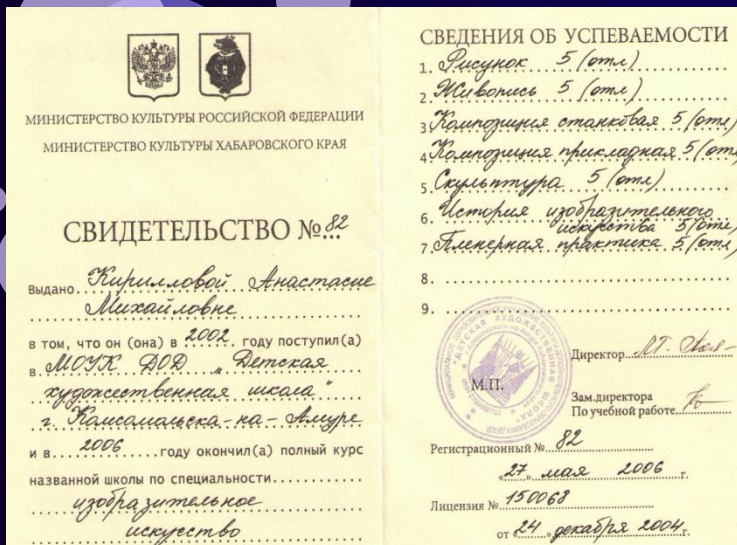 МИНИСТЕРСТВО КУЛЬТУРЫ РОССИЙСКОЙ ФЕДЕРАЦИИ
МИНИСТЕРСТВО КУЛЬТУРЫ ХАБАРОВСКОГО КРАЯ
СВИДЕТЕЛЬСТВО № 82
Выдано Кирилловой Анастасие
Михайловне
в том, что он (она) в 2002 году поступил(а)
в МОУК ДОД "Детская
художественная школа"
г. Комсомольска-на-Амуре
и в 2006 году окончил(а) полный курс
названной школы по специальности
изобразительное
искусство
СВЕДЕНИЯ ОБ УСПЕВАЕМОСТИ
1. Рисунок 5 (отл)
2. Живопись 5 (отл)
3. Композиция станковая 5 (отл)
4. Композиция прикладная 5 (отл)
5. Скульптура 5 (отл)
6. История изобразительного
искусства 5 (отл)
7. Пленерная практика 5 (отл)
8.
9.
ДЕТСКАЯ ХУДОЖЕСТВЕННАЯ ШКОЛА
М.П.
Директор
Зам.директора
По учебной работе
Регистрационный № 82
"27" мая 2006 г.
Лицензия № 150068
от "24" декабря 2004 г.